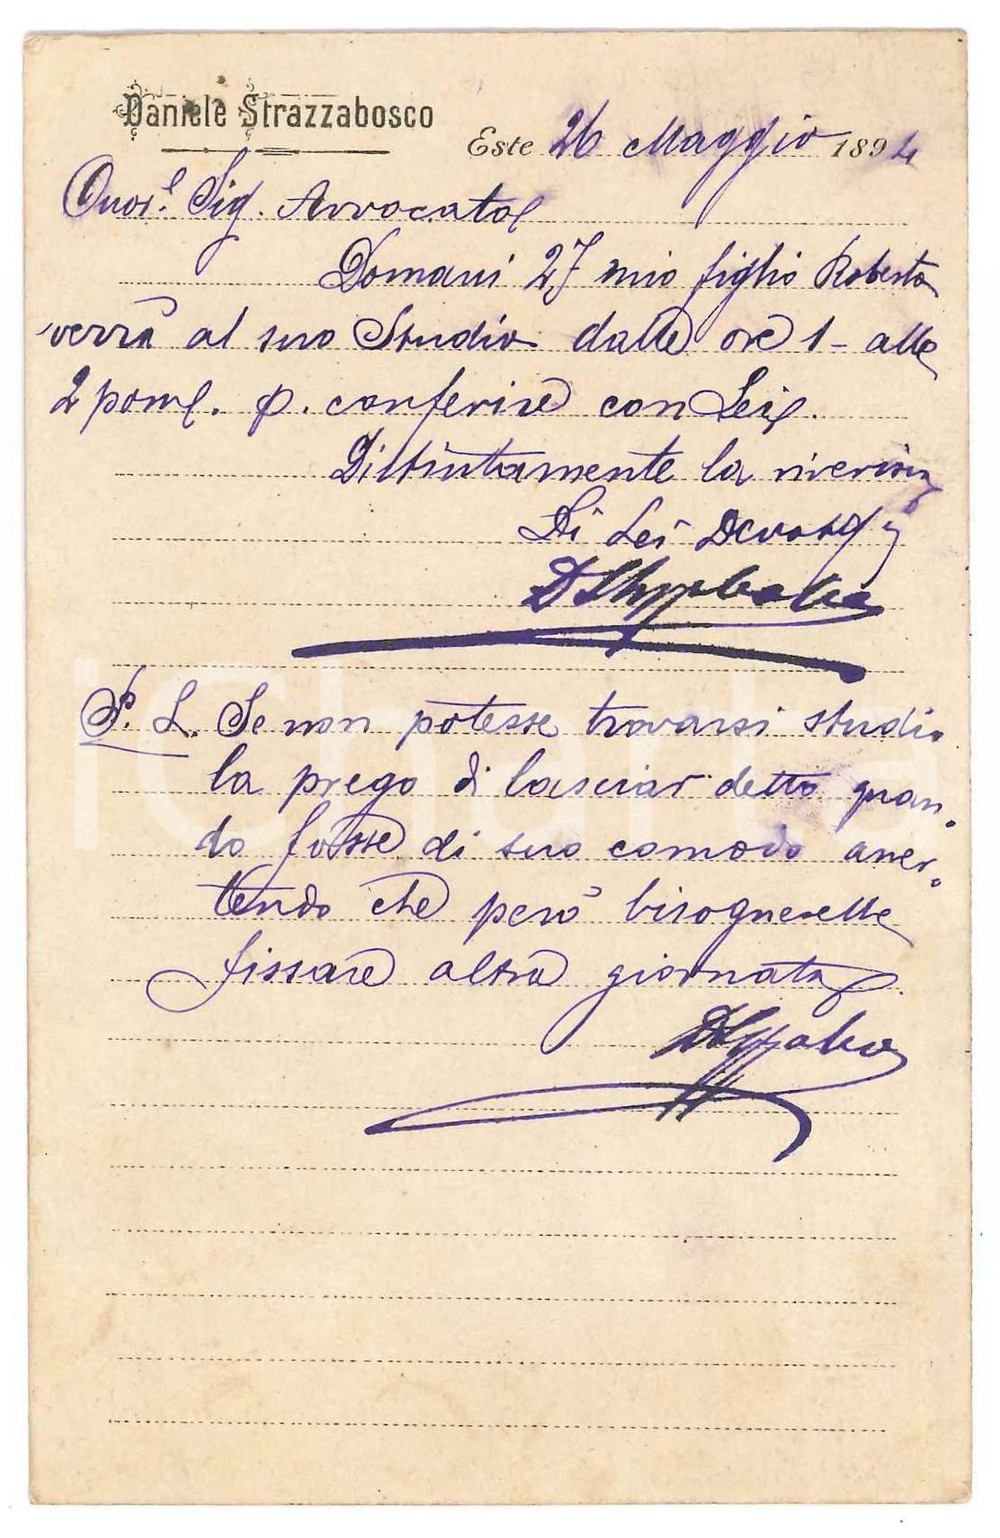 Daniele Strazzabosco
Este 26 Maggio 1894
Onor. Sig. Avvocato
Domani 27 mio figlio Roberto
verrà al suo Studio dalle ore 1 - alle
2 pom. p. conferire con Lei.
Distintamente la riverisco
Di Lei Devot
P. S. Se non potesse trovarsi studio
la prego di lasciar detto quan-
do fosse di suo comodo aver-
tendo che però bisognerebbe
fissare altra giornata.